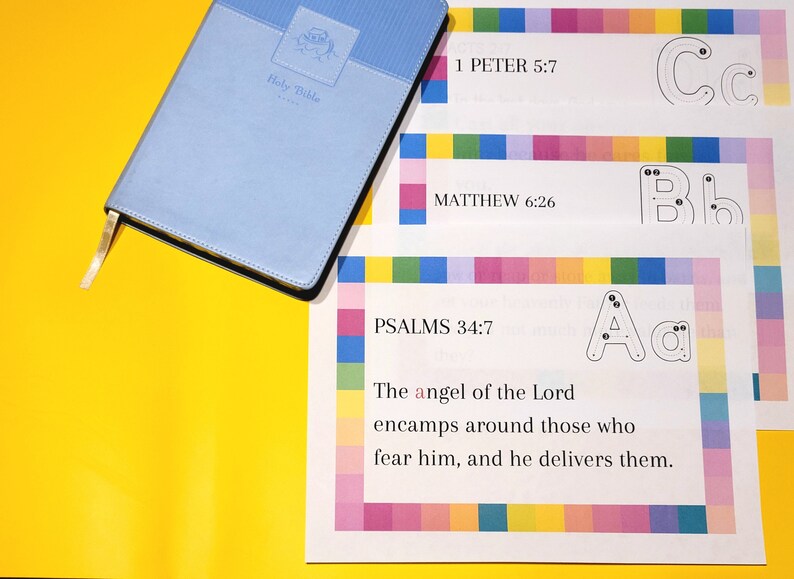 Holy Bible
1 PETER 5:7
Cc
MATTHEW 6:26
Bb
PSALMS 34:7
Aa
The angel of the Lord
encamps around those who
fear him, and he delivers them.